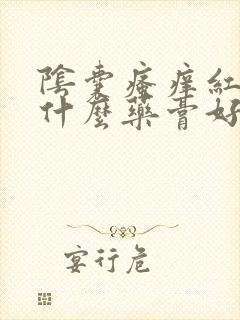 陰囊瘙癢紅
什麼藥膏好
宴行危